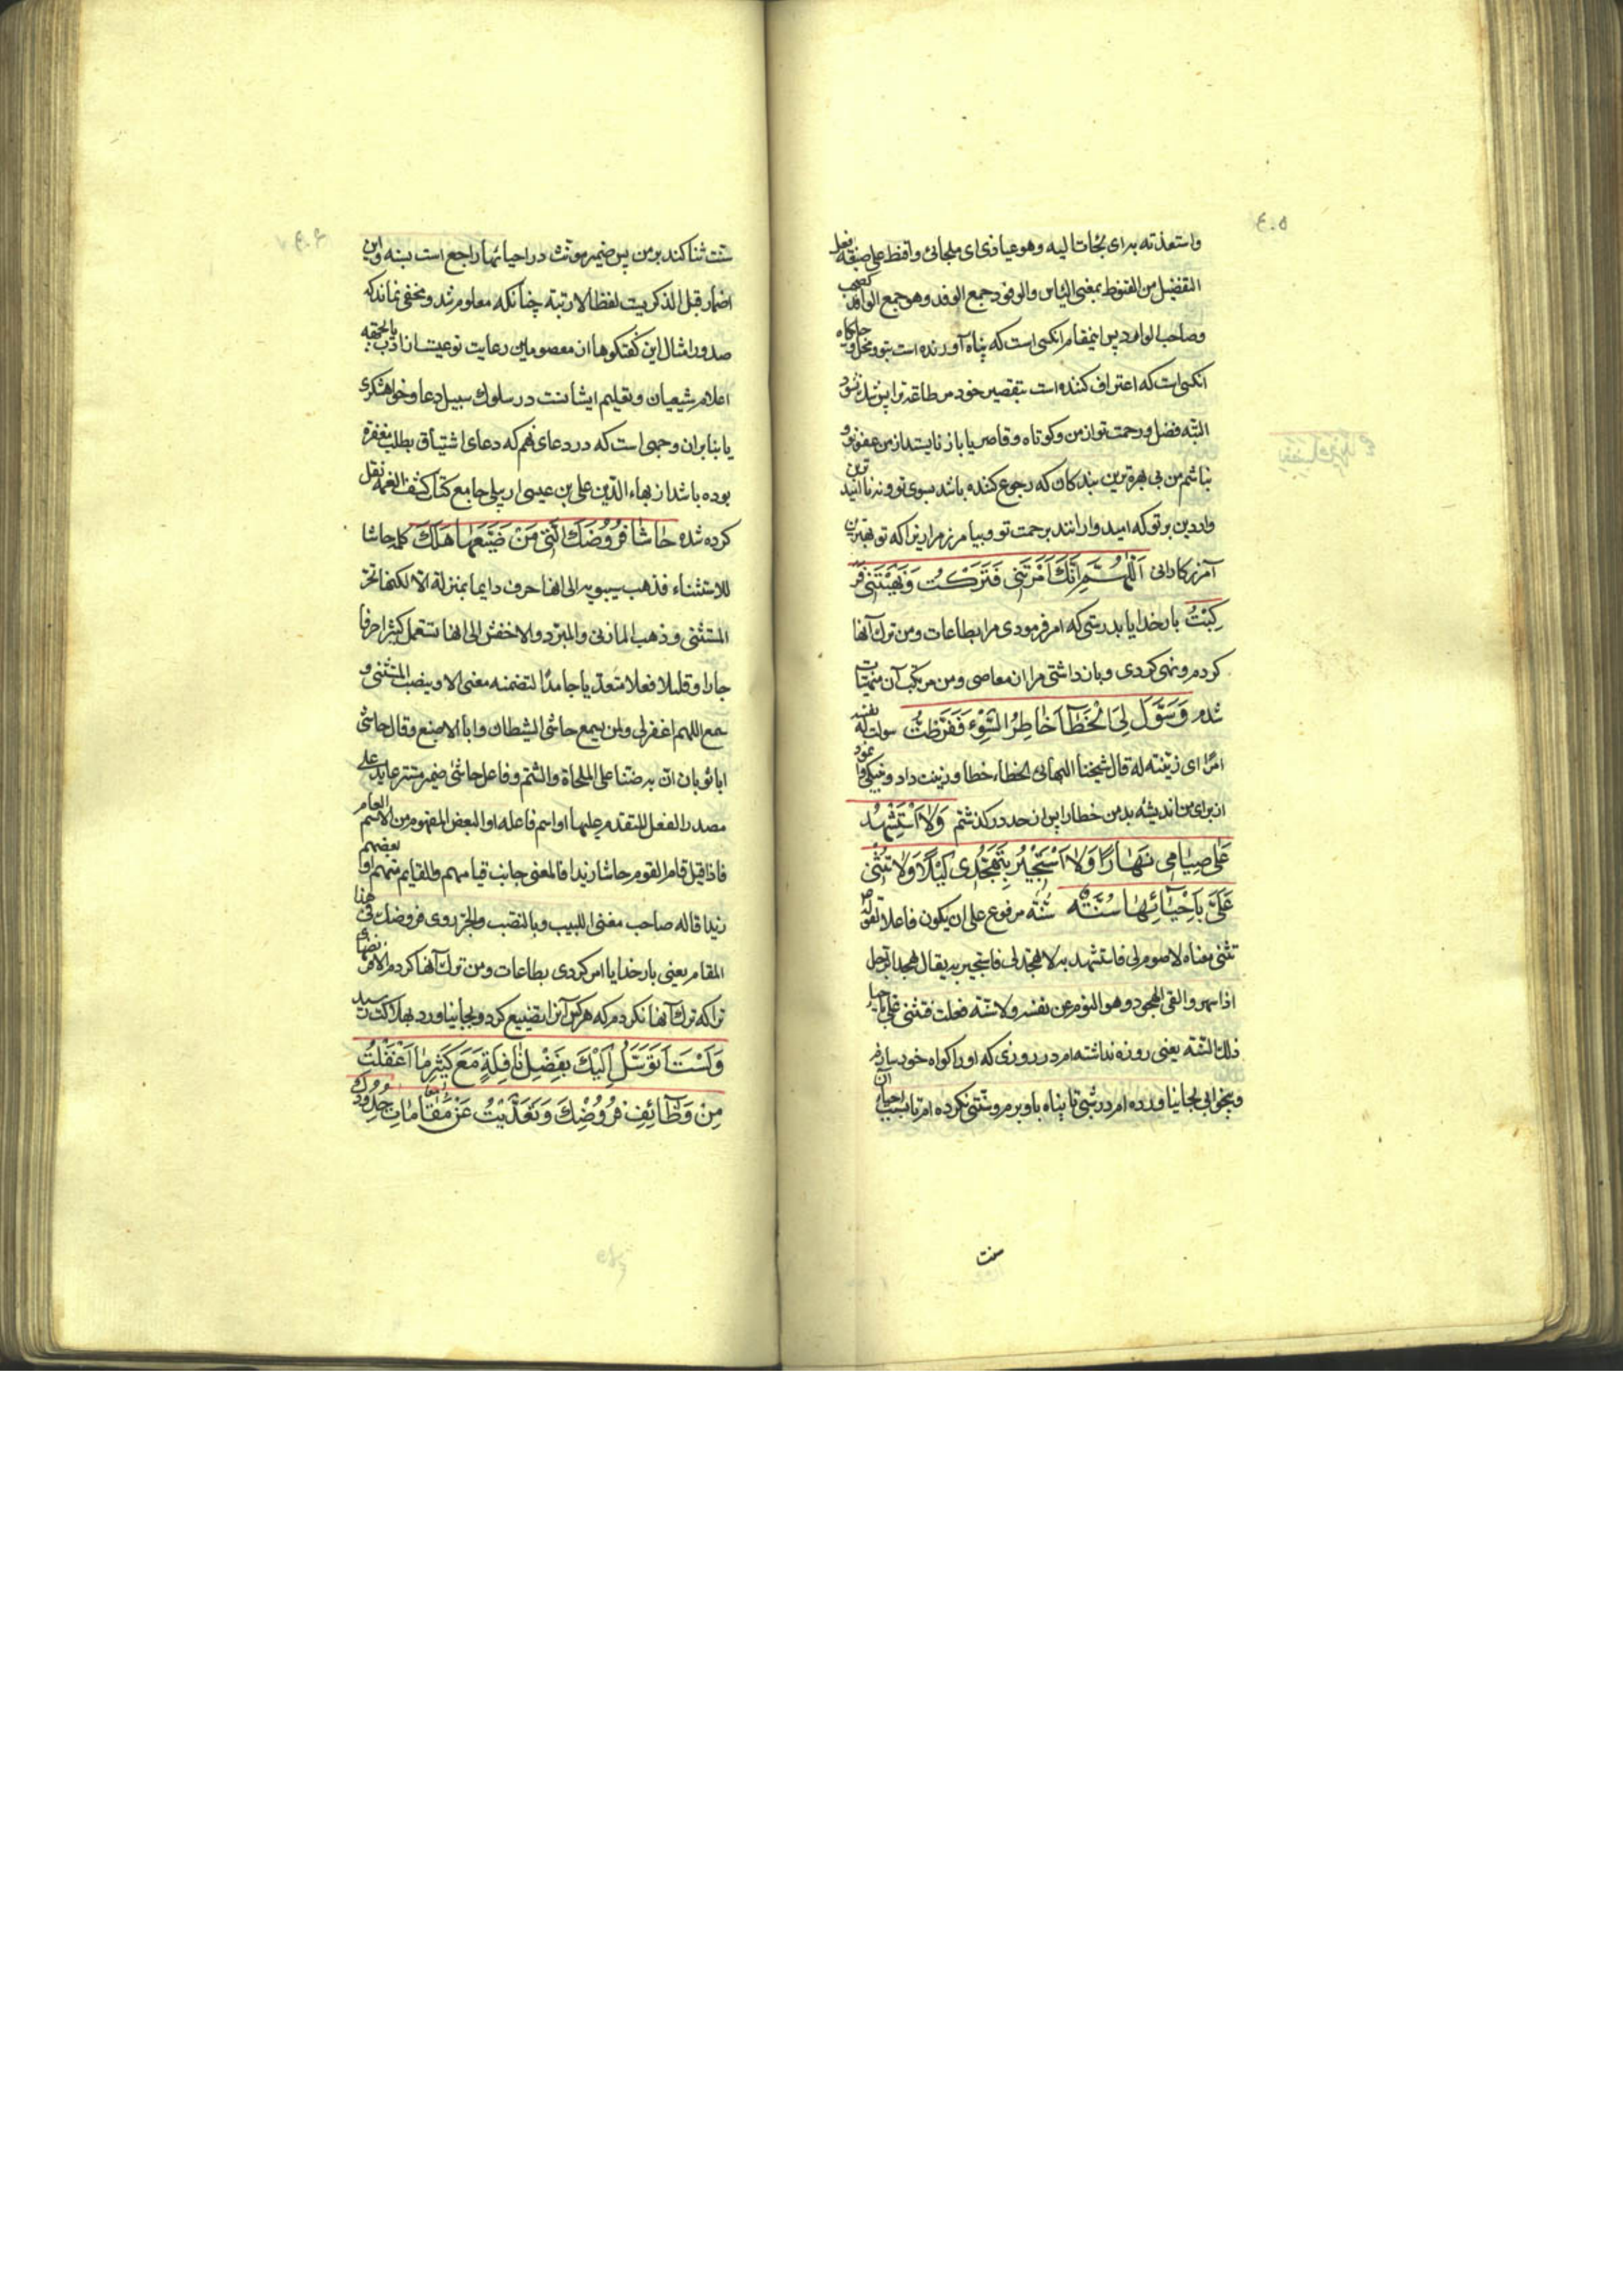 ۴۰۵
واستعذت به برای نجات الیه وهو عیاذی ای ملجائی واقنط علی صیغه افعل
التفضیل من القنوط بمعنی الیاس والوفود جمع الوفد وهو جمع الوافد کصحب
وصاحب الوارد پس اینمقام انکسی است که پناه آورنده است بتو ومحل و جایگاه
انکسی است که اعتراف کننده است بتقصیر خود مر طاعت ترا پس تنگ نشود
البته فضل ورحمت تو از من وکوتاه وقاصر یا باز نایستد از من عفو تو و
نباشم من بی بهره ترین بندکان که رجوع کننده باشد بسوی تو ونه نا امید ترین
واردین بر تو که امیدوارانند برحمت تو وبیامرز مرا زیرا که تو بهترین
آمرزکارانی اَللّهُمَّ اِنَّكَ اَمَرْتَنی فَتَرَكْتُ وَنَهَیْتَنی فَرَ
كِبْتُ بارخدایا بدرستی که امر فرمودی مرا بطاعات ومن ترک آنها
کردم ونهی کردی وبازداشتی مرا از معاصی ومن مرتکب آن منهیات
شدم وَسَوَّلَ لِیَ الْخَطَآءَ خاطِرُ السُّوْءِ فَفَرَّطْتُ سولت له نفسه
امرا ای زینته له قال شیخنا البهائی الخطاء خطا وزینت داد ونیکو وا نمود
از برای من اندیشه بد من خطا را پس از حد در گذشتم وَلا اَسْتَشْهِدُ
عَلی صِیامی نَهارًا وَلا اَسْتَجیرُ بِتَهَجُّدی لَیْلاً وَلا تُثْنی
عَلَیَّ بِاِحْیائِها سُنَّةٌ سُنّه مرفوع علی ان یکون فاعلا لقوله
تثنی معناه لا صوم لی فاستشهد به ولا تهجد لی فاستجیر به یقال تهجد الرجل
اذا سهر والقی الهجود وهو النوم عن نفسه ولا سنة فعلت فتثنی علی باحیا
ذلک السنه یعنی روزه نداشته ام در روزی که او را کواه خود سازم
وبیخوابی بجا نیاورده ام در شبی تا پناه باو برم وسنتی نکرده ام تا بسبب احیا ان
سنت
۴۰۶
سنت ثنا کند بر من پس ضمیر مونث در احیائها راجع است بسنه واین
اضمار قبل الذکریت لفظا لا رتبة چنانکه معلوم شد ومخفی نماند که
صدور امثال این گفتگوها از معصومین رعایت نوعیت از تادب یا بجهة
اعلام شیعیان وتعلیم ایشانست در سلوک سبیل دعا وخواهشگری
یا بنابران وجهی است که در دعای نهم که دعای اشتیاق بطلب مغفرة
بوده باشد از بهاء الدین علی بن عیسی اربلی جامع کتاب کشف الغمه نقل
کرده شده حاشا فُرُوضَكَ الَّتی مَنْ ضَیَّعَها هَلَكَ کلمه حاشا
للاستثناء فذهب سیبویه الی انها حرف دایما بمنزلة الا لکنها تجر
المستثنی وذهب المازنی والمبرد والاخفش الی انها تستعمل کثیرا حرفا
جارا وقلیلا فعلا متعدیا جامدا لتضمنه معنی الا وینصب المستثنی و
سمع اللهم اغفر لی ولمن یسمع حاشی الشیطان وابا الاصبع وقال حاشی
ابا ثوبان ان به ضنا علی الملحاة والشتم وفاعل حاشی ضمیر مستتر عاید علی
مصدر الفعل المتقدم علیها او اسم فاعله او البعض المفهوم من الاسم العام
فاذا قیل قام القوم حاشا زیدا فالمعنی جانب قیامهم والقایم منهم او بعضهم
زیدا قاله صاحب مغنی اللبیب وبالنصب والجر روی فروضک فی هذا
المقام یعنی بارخدایا امر کردی بطاعات ومن ترک آنها کردم الا فرضهای
ترا که ترک آنها نکردم که هر کس آنرا تضییع کرد وبجا نیاورد بهلاکت رسید
وَلَسْتُ اَتَوَسَّلُ اِلَیْكَ بِفَضْلِ نافِلَةٍ مَعَ كَثیرِ ما اَغْفَلْتُ
مِنْ وَظآئِفِ فُرُوضِكَ وَتَعَدَّیْتُ عَنْ مَقاماتِ حُدُودِكَ